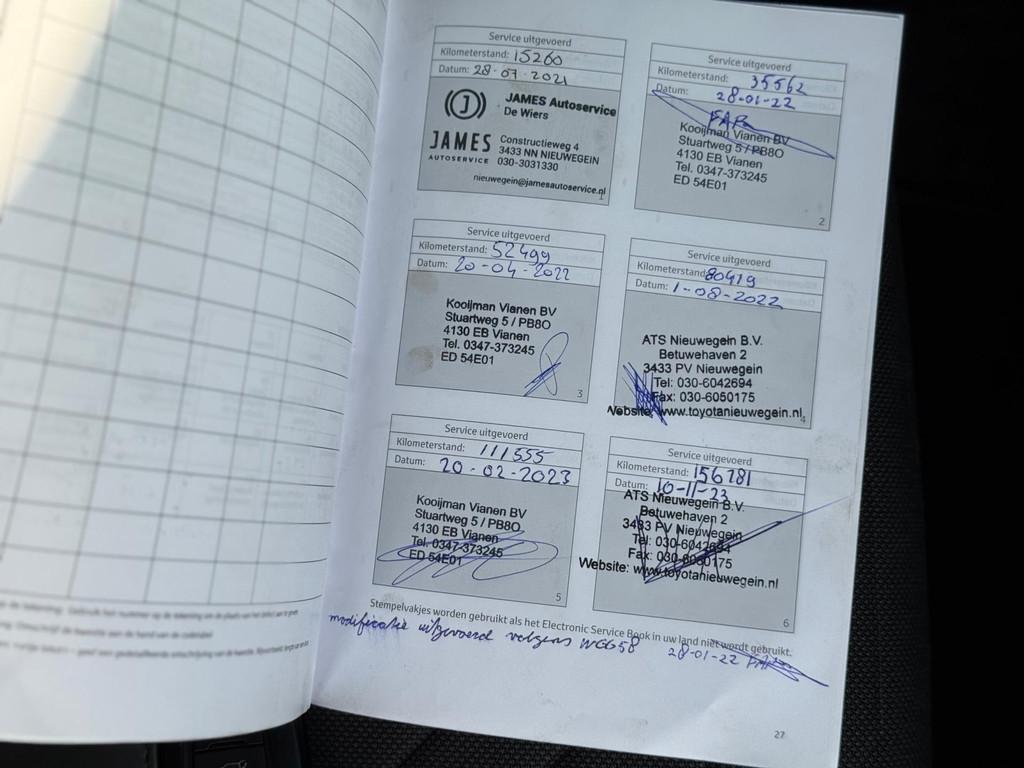 Service uitgevoerd
Kilometerstand: 15260
Datum: 28-07-2021
J
JAMES Autoservice
De Wiers
JAMES
AUTOSERVICE
Constructieweg 4
3433 NN NIEUWEGEIN
030-3031330
nieuwegein@jamesautoservice.nl
1
Service uitgevoerd
Kilometerstand: 35562
Datum: 28-01-22
Kooijman Vianen BV
Stuartweg 5 / PB8O
4130 EB Vianen
Tel. 0347-373245
ED 54E01
2
Service uitgevoerd
Kilometerstand: 52499
Datum: 20-04-2022
Kooijman Vianen BV
Stuartweg 5 / PB8O
4130 EB Vianen
Tel. 0347-373245
ED 54E01
3
Service uitgevoerd
Kilometerstand: 80419
Datum: 1-08-2022
ATS Nieuwegein B.V.
Betuwehaven 2
3433 PV Nieuwegein
Tel: 030-6042694
Fax: 030-6050175
Website: www.toyotanieuwegein.nl
4
Service uitgevoerd
Kilometerstand: 111555
Datum: 20-02-2023
Kooijman Vianen BV
Stuartweg 5 / PB8O
4130 EB Vianen
Tel. 0347-373245
ED 54E01
5
Service uitgevoerd
Kilometerstand: 156781
Datum: 10-11-23
ATS Nieuwegein B.V.
Betuwehaven 2
3433 PV Nieuwegein
Tel: 030-6042694
Fax: 030-6050175
Website: www.toyotanieuwegein.nl
6
Stempelvakjes worden gebruikt als het Electronic Service Book in uw land niet wordt gebruikt.
modificatie uitgevoerd volgens WGG58 28-01-22
27